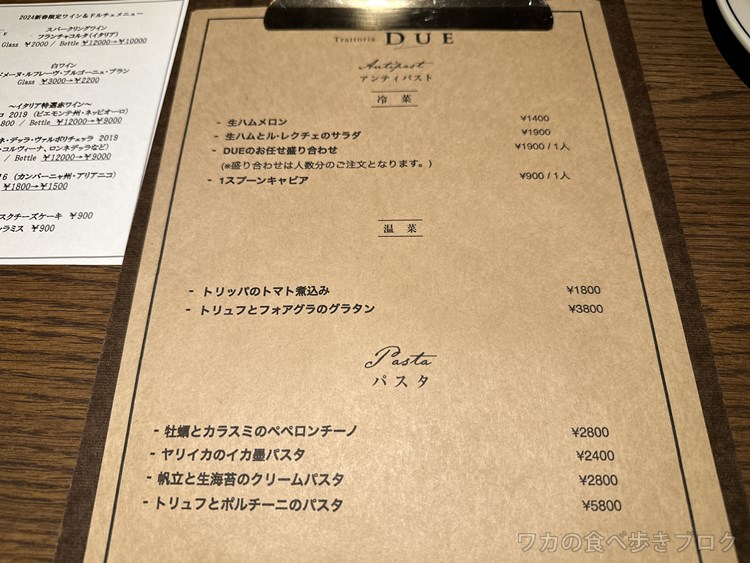 2024新春限定ワイン&ドルチェメニュー
スパークリングワイン
フランチャコルタ(イタリア)
Glass ¥2000 / Bottle ¥12000→¥10000
白ワイン
ドメーヌ・ルフレーヴ・ブルゴーニュ・ブラン
Glass ¥3000→¥2200
～イタリア特選赤ワイン～
コ 2019 (ピエモンテ州・ネッビオーロ)
800 / Bottle ¥12000→¥9000
ネ・デッラ・ヴァルポリチェッラ 2019
・コルヴィーナ、ロンネデッラなど)
/ Bottle ¥12000→¥9000
16 (カンパーニャ州・アリアニコ)
¥1800→¥1500
スクチーズケーキ ¥900
ラミス ¥900
Trattoria DUE
Antipast
アンティパスト
冷菜
- 生ハムメロン ¥1400
- 生ハムとル・レクチェのサラダ ¥1900
- DUEのお任せ盛り合わせ ¥1900 / 1人
(※盛り合わせは人数分のご注文となります。)
- 1スプーンキャビア ¥900 / 1人
温菜
- トリッパのトマト煮込み ¥1800
- トリュフとフォアグラのグラタン ¥3800
Pasta
パスタ
- 牡蠣とカラスミのペペロンチーノ ¥2800
- ヤリイカのイカ墨パスタ ¥2400
- 帆立と生海苔のクリームパスタ ¥2800
- トリュフとポルチーニのパスタ ¥5800
ワカの食べ歩きブログ